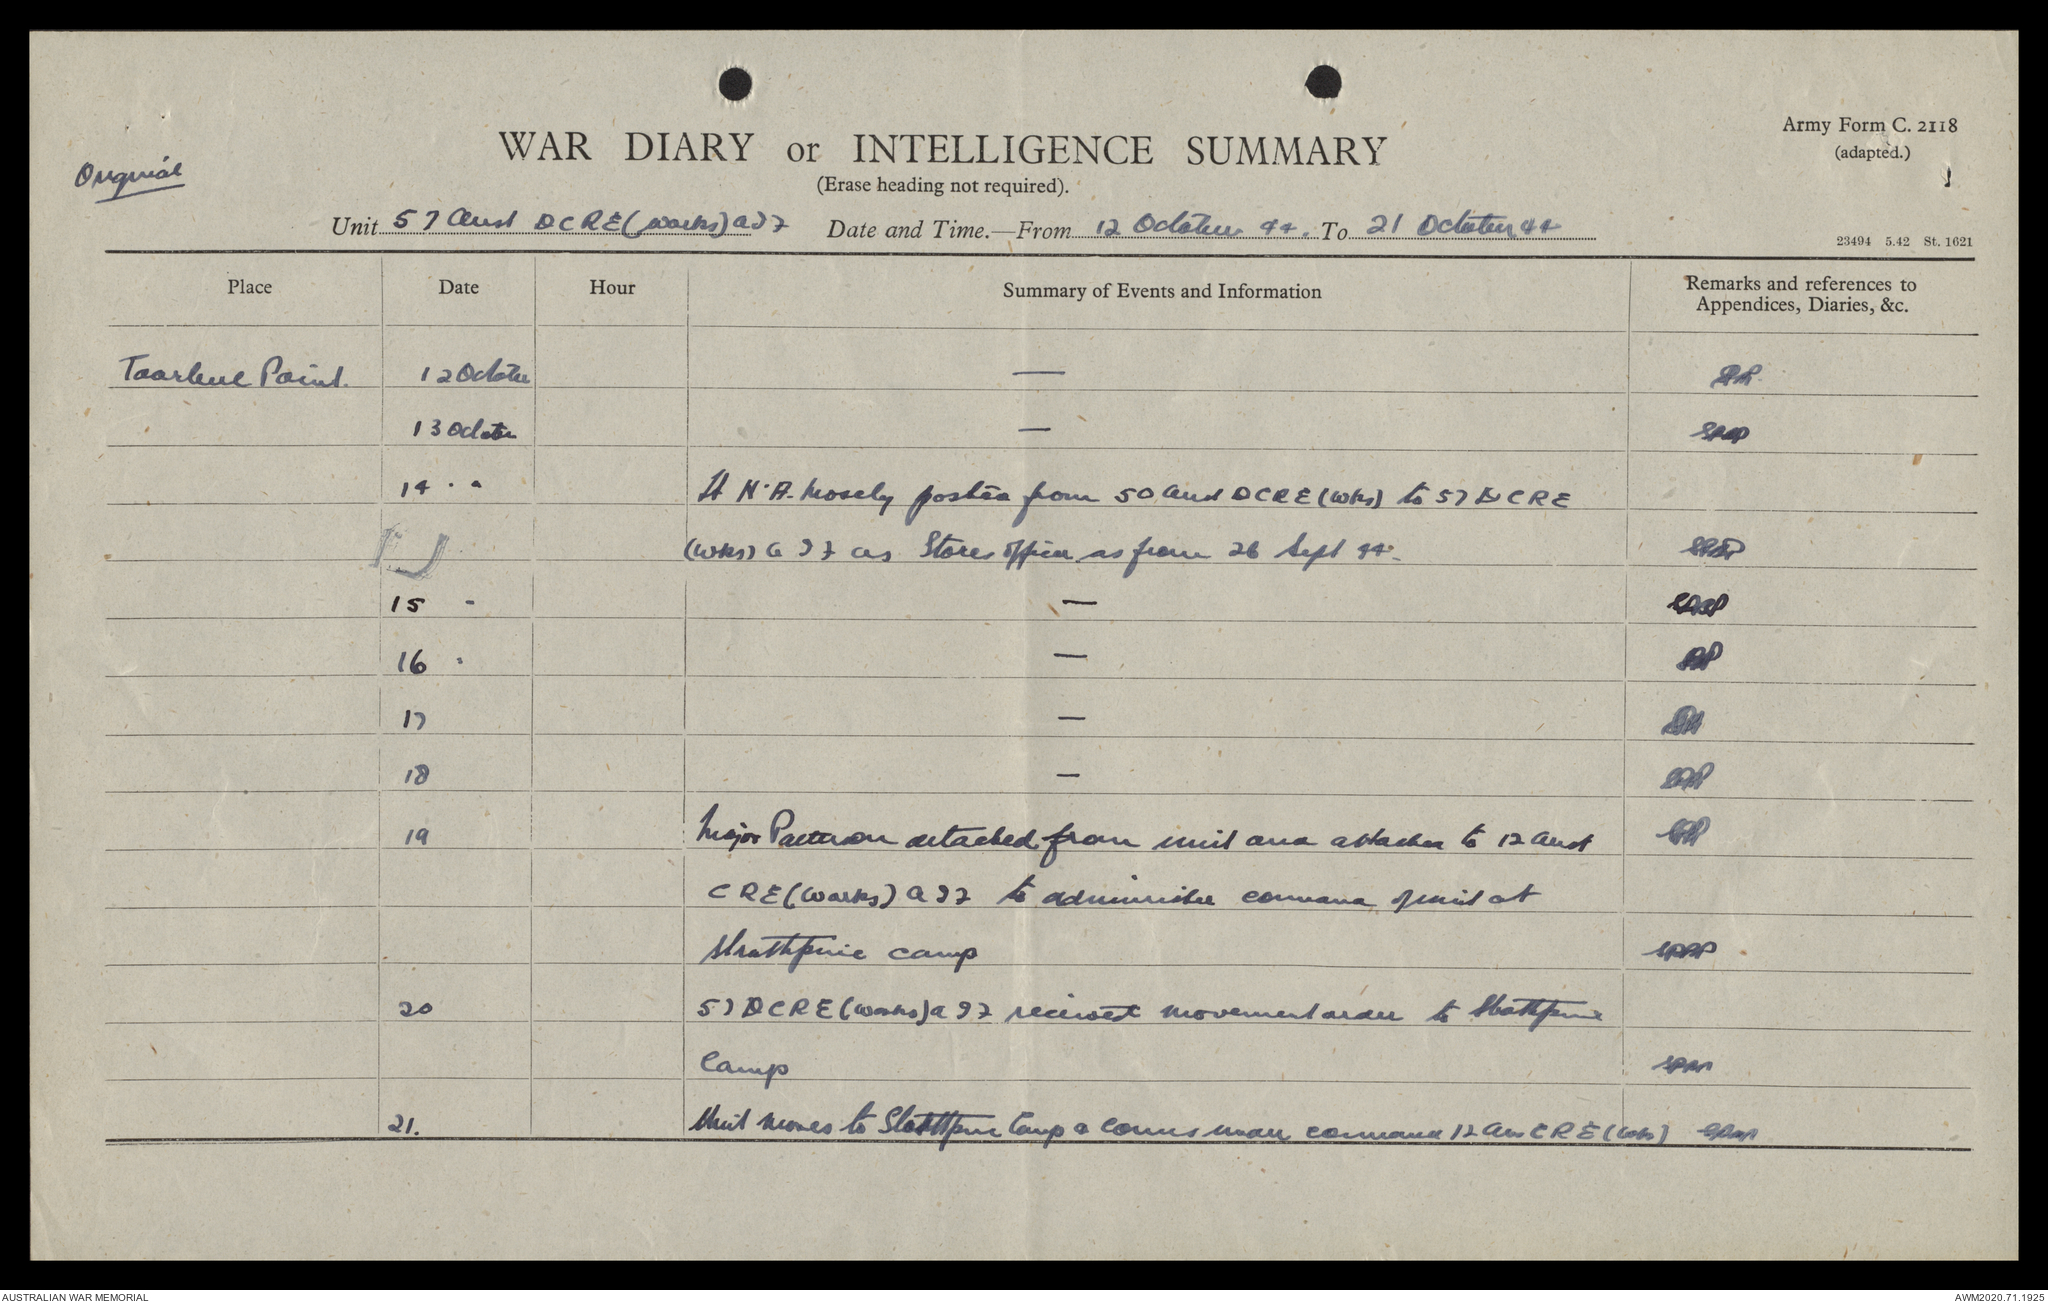 Original
WAR DIARY or INTELLIGENCE SUMMARY
(Erase heading not required).
Army Form C. 2118
(adapted.)
1
Unit 57 Aust DCRE (works) AIF Date and Time.—From 12 October 44. To 21 October 44
23494 5.42 St. 1621
Place Date Hour Summary of Events and Information Remarks and references to
Appendices, Diaries, &c.
Point. 12 October —
13 October —
14 " " Lt N.A. Mosely posted from 50 Aust DCRE (Wks) to 57 DCRE
(Wks) AIF as Stores officer as from 26 Sept 44.
15 " —
16 " —
17 —
18 —
19 Major detached from unit and attached to 12 Aust
CRE (Works) AIF to administer command of unit at
Strathpine camp
20 57 DCRE (works) AIF received movement order to Strathpine
Camp
21. Unit moves to Strathpine Camp & comes under command 12 Aus CRE (Wks)
AUSTRALIAN WAR MEMORIAL
AWM2020.71.1925